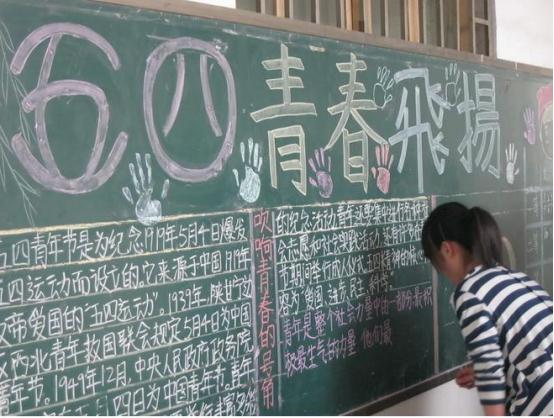 五四 青春飛揚
五四青年节是为纪念1919年5月4日爆发
五四运动而设立的。它来源于中国1919年
反帝爱国的"五四运动"。1939年，陕甘宁边
区西北青年救国联合会规定5月4日为中国
青年节。1949年12月，中央人民政府政务院
四日为中国青年节。青年
吹响青春的号角
的纪念活动青年
节期间举行
容为"爱国、进步、民主、科学"。
青年是整个社会力量中的一部分最积
极最生气的力量 他们最